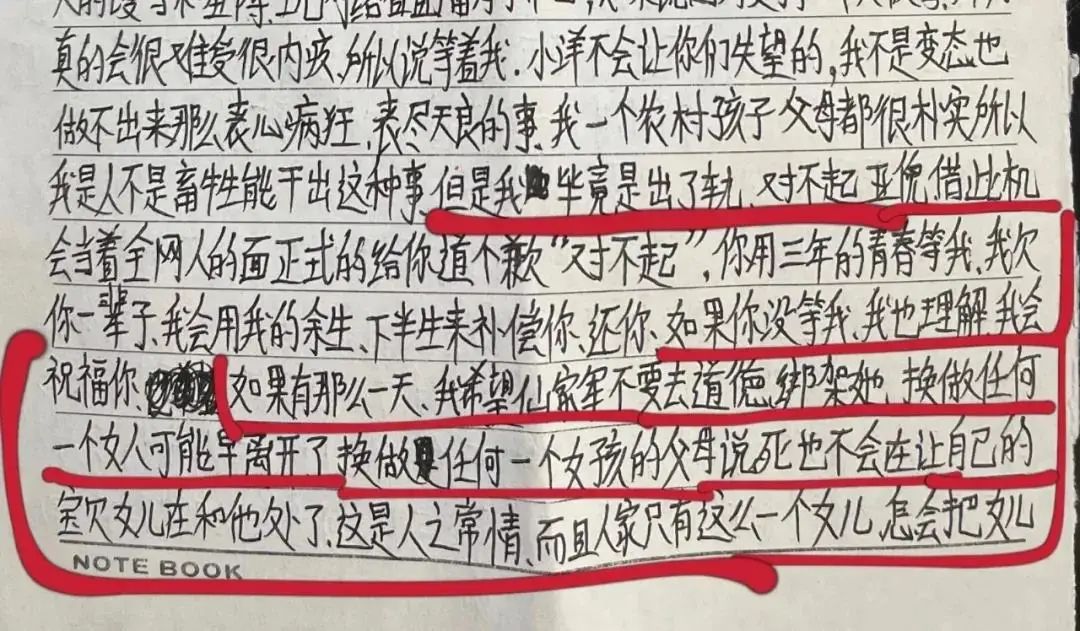 真的会很难受很内疚.所以说等着我.小洋不会让你们失望的,我不是变态也
做不出来那么丧心病狂.丧尽天良的事.我一个农村孩子父母都很朴实所以
我是人不是畜牲能干出这种事.但是我毕竟是出了轨、对不起亚倪.借此机
会当着全网人的面正式的给你道个歉“对不起”,你用三年的青春等我.我欠
你一辈子.我会用我的余生、下半生来补偿你.还你、如果你没等我.我也理解我会
祝福你、如果有那么一天、我希望仙家军不要去道德绑架她,换做任何
一个女人可能早离开了换做任何一个女孩的父母说死也不会在让自己的
宝贝女儿在和他处了.这是人之常情、而且人家只有这么一个女儿.怎会把女儿
NOTE BOOK